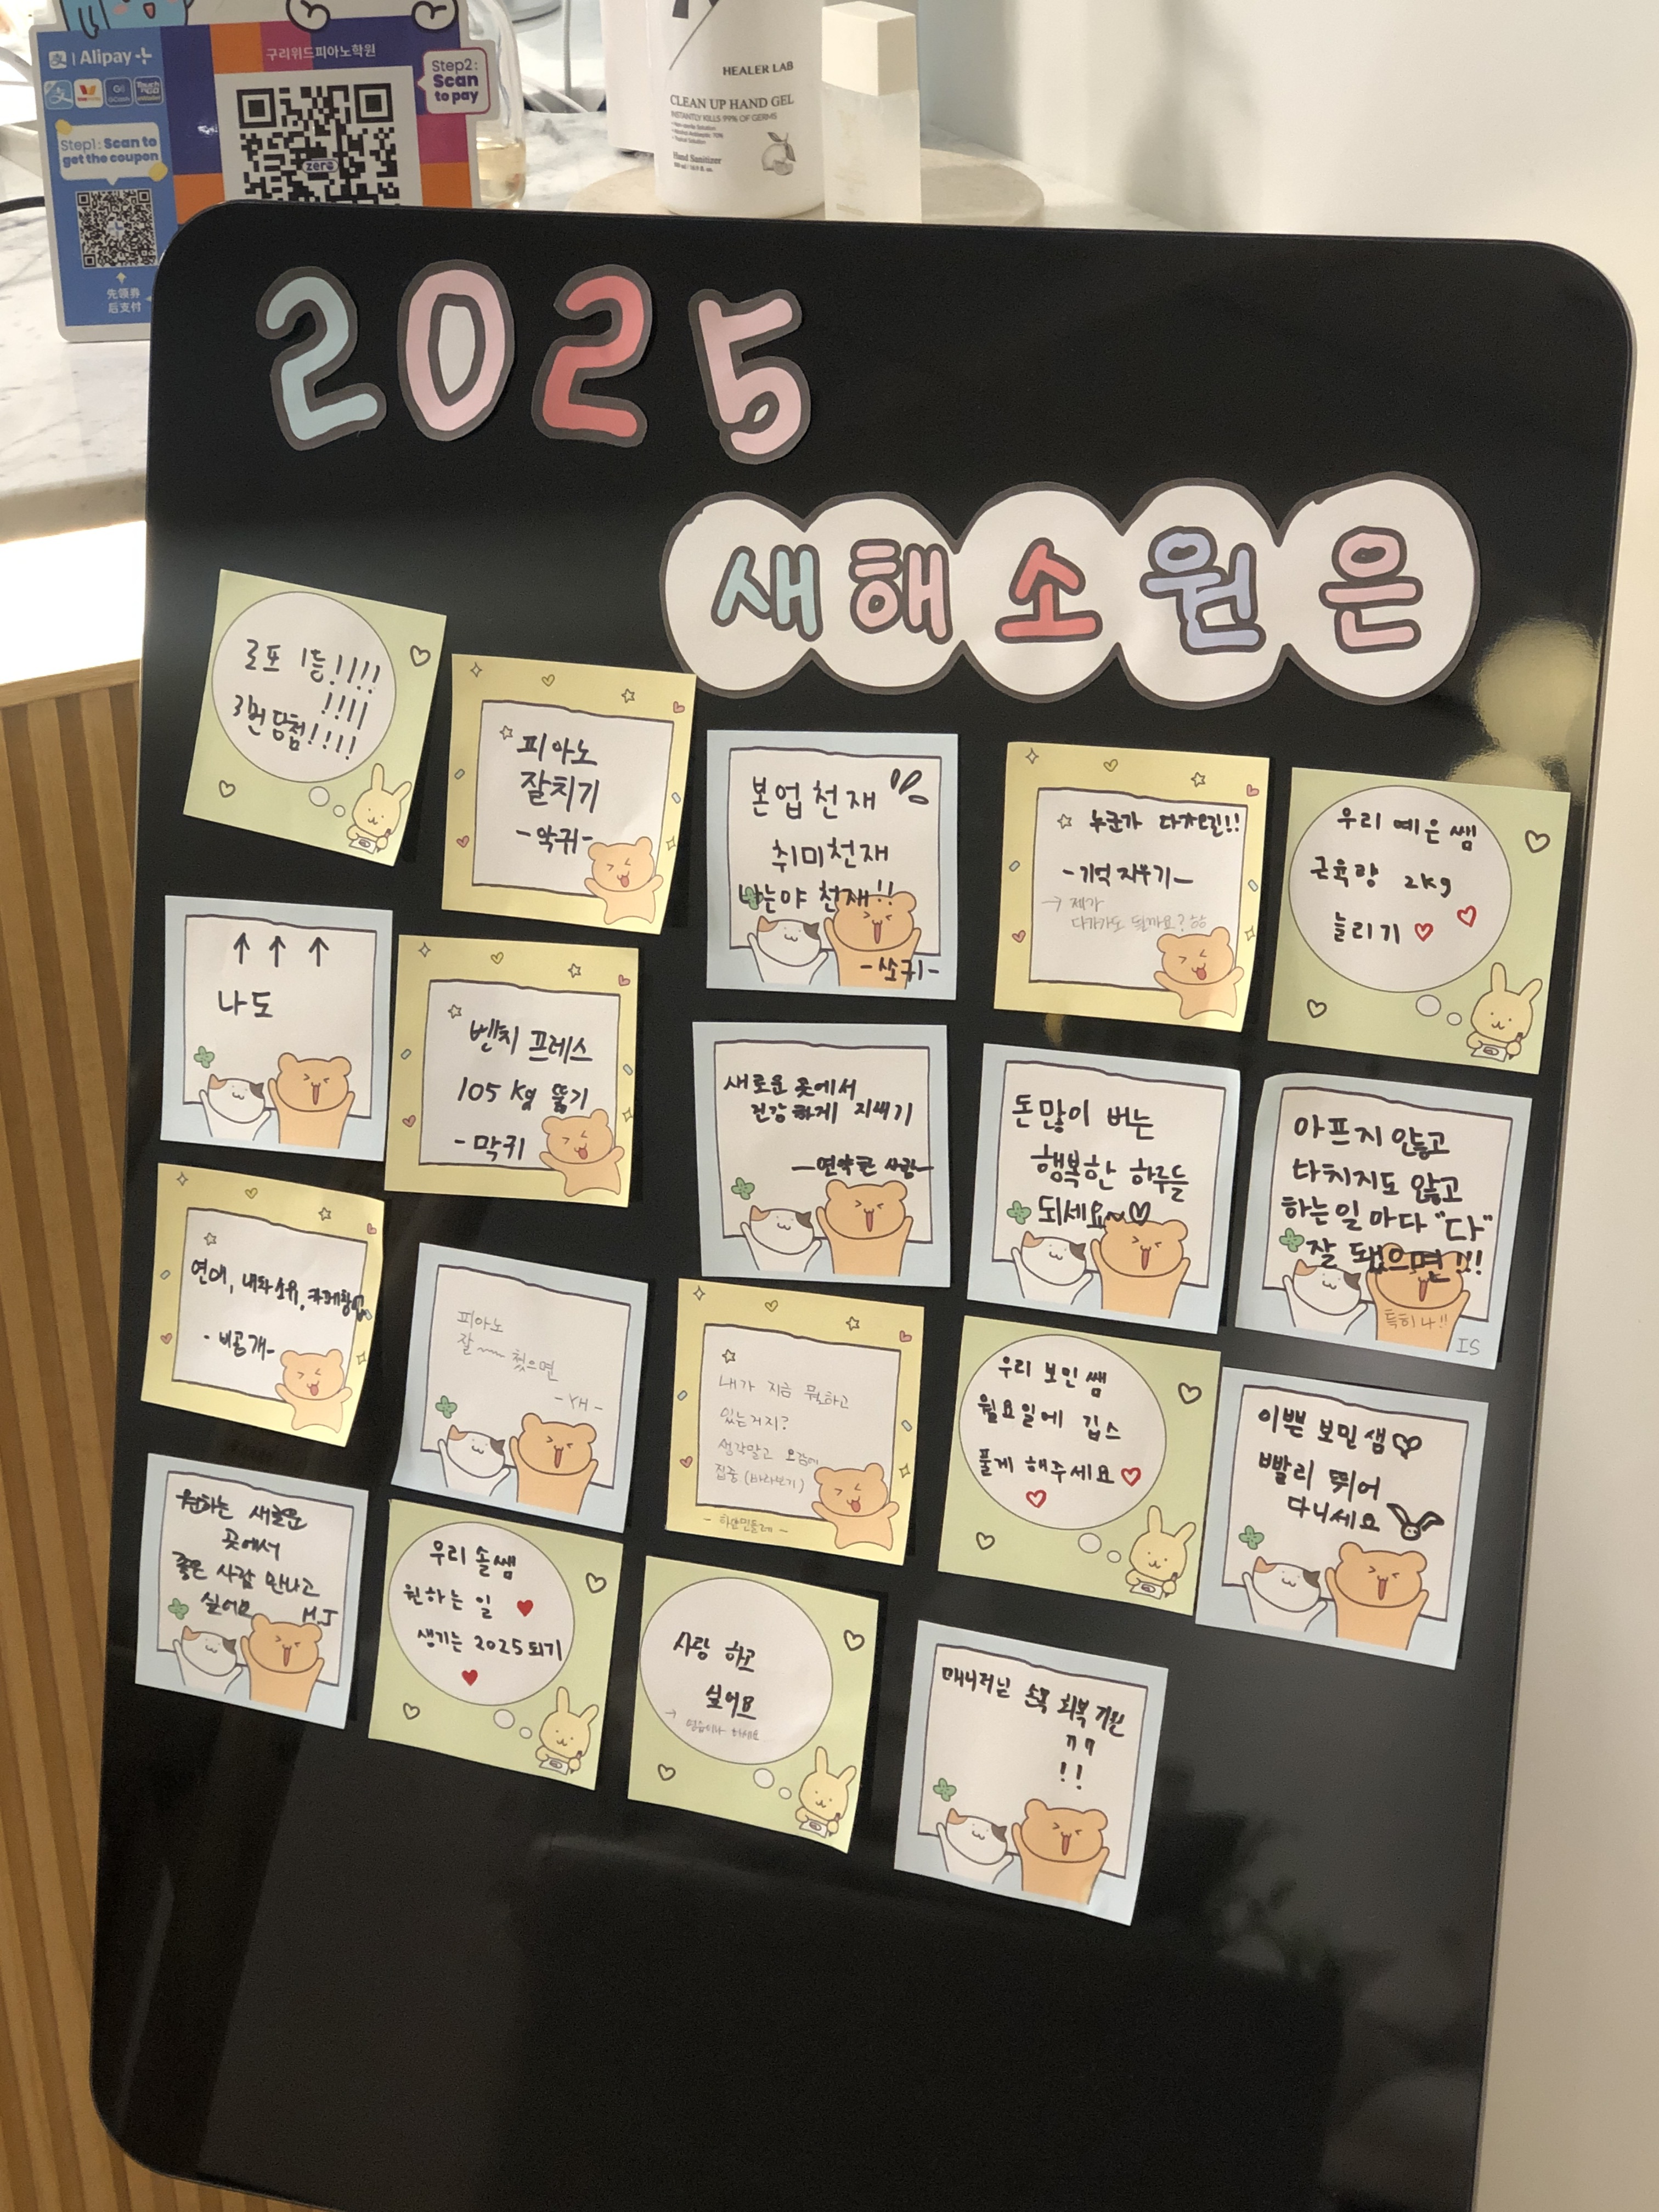 Alipay+
구리위드피아노학원
Step2:
Scan
to pay
Step1: Scan to
get the coupon
zero
先领券
后支付
HEALER LAB
CLEAN UP HAND GEL
INSTANTLY KILLS 99% OF GERMS
Hand Sanitizer
2025
새해소원은
로또 1등!!!!
!!!!
3번 당첨!!!!
피아노
잘치기
-악귀-
본업천재
취미천재
나는야 천재!!
-쏘귀-
누군가 다가오길!!
-기억 지우기-
→ 제가
다가가도 될까요?
우리 예은쌤
근육량 2kg
늘리기 ♡ ♡
↑ ↑ ↑
나도
벤치 프레스
105 kg 뚫기
-막귀
새로운 곳에서
건강하게 지내기
-연약한 사람-
돈많이 버는
행복한 하루들
되세요~♡
아프지 않고
다치지도 않고
하는일 마다 "다"
잘 됐으면!!!
특히 나!!
IS
연애, 내차소유,
-비공개-
피아노
잘~~ 쳤으면
-YH-
내가 지금 뭘하고
있는거지?
생각말고 오감에
집중 (바라보기)
-하얀민들레-
우리 보민쌤
월요일에 깁스
풀게 해주세요 ♡
♡
이쁜 보민샘♡
빨리 뛰어
다니세요
원하는 새로운
곳에서
좋은 사람 만나고
싶어요 MJ
우리 솔쌤
원하는 일 ♥
생기는 2025되기
♥
사랑 하고
싶어요
매니저님 손목 회복 기원
ㄲㄲ
!!